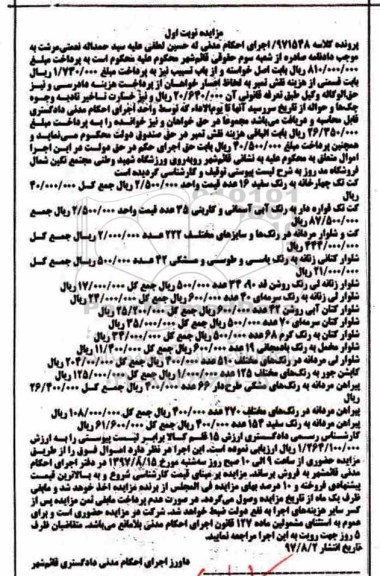 مزایده نوبت اول
پرونده کلاسه ۹۷۱۵۴۸/ اجرای احکام مدنی له حسین لطفی علیه سید حمداله نعمتی‌مرشت به
موجب دادنامه صادره از شعبه سوم حقوقی قائم‌شهر محکوم علیه محکوم است به پرداخت مبلغ
۸۱۰/۰۰۰/۰۰۰ ریال بابت اصل خواسته و از باب تسبیب نیز به پرداخت مبلغ ۱/۷۳۰/۰۰۰ ریال
بابت قسمتی از هزینه نقش تمبر به لحاظ اعسار خواهان از پرداخت هزینه دادرسی و نیز
حق‌الوکاله وکیل طبق تعرفه قانونی آن ۲۰/۶۴۰/۰۰۰ ریال و نیز خسارت تاخیر تادیه وجوه
چک‌ها و حواله از تاریخ سررسید آنها تا یوم‌الاداء که توسط واحد اجرای احکام مدنی دادگستری
قابل محاسبه و دریافت می‌باشد مجموعا در حق خواهان و نیز خوانده را به پرداخت مبلغ
۲۶/۳۵۰/۰۰۰ ریال بابت الباقی هزینه نقش تمبر در حق صندوق دولت محکوم می‌نماید و
همچنین پرداخت مبلغ ۴۰/۵۰۰/۰۰۰ ریال بابت حق اجرای حکم در حق دولت در این اجرا
اموال متعلق به محکوم علیه به نشانی قائم‌شهر روبه‌روی ورزشگاه شهید وطنی مجتمع نگین شمال
فروشگاه مد روز به شرح لیست پیوستی توقیف و کارشناسی گردیده است
کت تک چهارخانه به رنگ سفید ۱۶ عدد قیمت واحد ۲/۵۰۰/۰۰۰ ریال جمع کل ۴۰/۰۰۰/۰۰۰
ریال
کت تک قواره دار به رنگ آبی آسمانی و کاربنی ۳۵ عدد قیمت واحد ۲/۵۰۰/۰۰۰ ریال جمع
۸۷/۵۰۰/۰۰۰ ریال
کت و شلوار مردانه در رنگ‌ها و سایزهای مختلف ۲۲۲ عدد ۲/۰۰۰/۰۰۰ ریال جمع کل
۴۴۴/۰۰۰/۰۰۰ ریال
شلوار کتانی زنانه به رنگ یاسی و طوسی و مشکی ۴۲ عدد ۵۰۰/۰۰۰ ریال جمع کل
۲۱/۰۰۰/۰۰۰ ریال
شلوار زنانه لی رنگ روشن قد ۹۰، ۳۴ عدد ۵۰۰/۰۰۰ ریال جمع کل ۱۷/۰۰۰/۰۰۰ ریال
شلوار لی زنانه به رنگ سرمه‌ای ۴۰ عدد ۶۰۰/۰۰۰ ریال جمع کل ۲۴/۰۰۰/۰۰۰ ریال
شلوار کتان آبی روشن ۴۲ عدد ۶۰۰/۰۰۰ ریال جمع کل ۲۵/۲۰۰/۰۰۰ ریال
شلوار کتان سرمه‌ای ۷۰ عدد ۵۰۰/۰۰۰ ریال جمع کل ۳۵/۰۰۰/۰۰۰ ریال
شلوار کتان به رنگ کرم ۶۸ عدد ۵۰۰/۰۰۰ ریال جمع کل ۳۴/۰۰۰/۰۰۰ ریال
شلوار مخمل به رنگ بادمجانی ۱۹ عدد ۶۰۰/۰۰۰ ریال جمع کل ۱۱/۴۰۰/۰۰۰ ریال
شلوار لی مردانه در رنگ‌های مختلف ۵۱۰ عدد ۴۰۰/۰۰۰ ریال جمع کل ۲۰۴/۰۰۰/۰۰۰ ریال
کاپشن جور به رنگ‌های مختلف ۱۲۵ عدد ۱/۰۰۰/۰۰۰ ریال جمع کل ۱۲۵/۰۰۰/۰۰۰ ریال
پیراهن مردانه به رنگ‌های مشکی طرح‌دار ۶۶ عدد ۴۰۰/۰۰۰ ریال جمع کل ۲۶/۴۰۰/۰۰۰
ریال
پیراهن مردانه در رنگ‌های مختلف ۲۷۰ عدد ۴۰۰/۰۰۰ ریال جمع کل ۱۰۸/۰۰۰/۰۰۰ ریال
پیراهن مردانه به رنگ سفید ۱۵۴ عدد ۴۰۰/۰۰۰ ریال جمع کل ۶۱/۶۰۰/۰۰۰ ریال
کارشناس رسمی دادگستری ارزش ۱۵ قلم کالا برابر لیست پیوستی را به ارزش
۱/۲۶۴/۱۰۰/۰۰۰ ریال ارزیابی نموده است. این اجرا در نظر دارد اموال فوق را از طریق
مزایده حضوری از ساعت ۹ الی ۱۰ صبح روز سه‌شنبه مورخ ۱۳۹۷/۸/۱۵ در دفتر اجرای احکام
مدنی قائمشهر به فروش برساند. مزایده بر مبنای قیمت کارشناسی شروع و به بالاترین قیمت
پیشنهادی فروخته و ۱۰ درصد بهای مزایده فی المجلس از برنده مزایده اخذ خواهد شد و مابقی
ظرف یک ماه از تاریخ مزایده وصول می‌گردد. در صورت عدم پرداخت مابقی ثمن مزایده پس از
کسر سایر هزینه‌های اجرا به نفع دولت ضبط خواهد شد. شرکت در مزایده حضوری است و برای
عموم به استثنای مشمولین ماده ۱۲۷ قانون اجرای احکام مدنی بلامانع می‌باشد. متقاضیان ظرف
۵ روز جهت رویت به این اجرا مراجعه نمایند.
تاریخ انتشار ۹۷/۸/۲
داورز اجرای احکام مدنی دادگستری قائم‌شهر